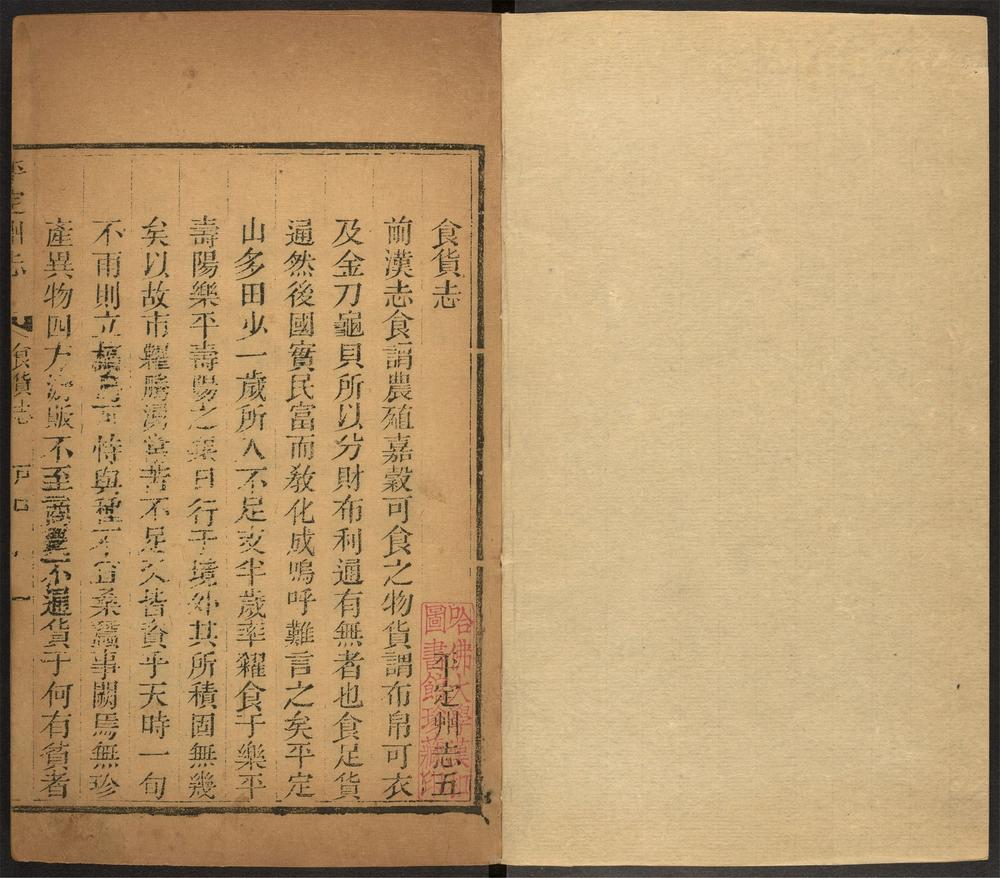 食貨志
平定州志五
前漢志食謂農殖嘉穀可食之物貨謂布帛可衣
及金刀龜貝所以分財布利通有無者也食足貨
通然後國實民富而教化成嗚呼難言之矣平定
山多田少一歲所入不足支半歲率糴食于樂平
壽陽樂平壽陽之粟日行于境外其所積固無幾
矣以故市糴騰湧常苦不足又皆資乎天時一旬
不雨則立槁 可恃與種不宜桑蠶事闕焉無珍
產異物四方 販不至 不通貨于何有貧者
平定州志
食貨志
一
哈佛大學漢和
圖書館珍藏印